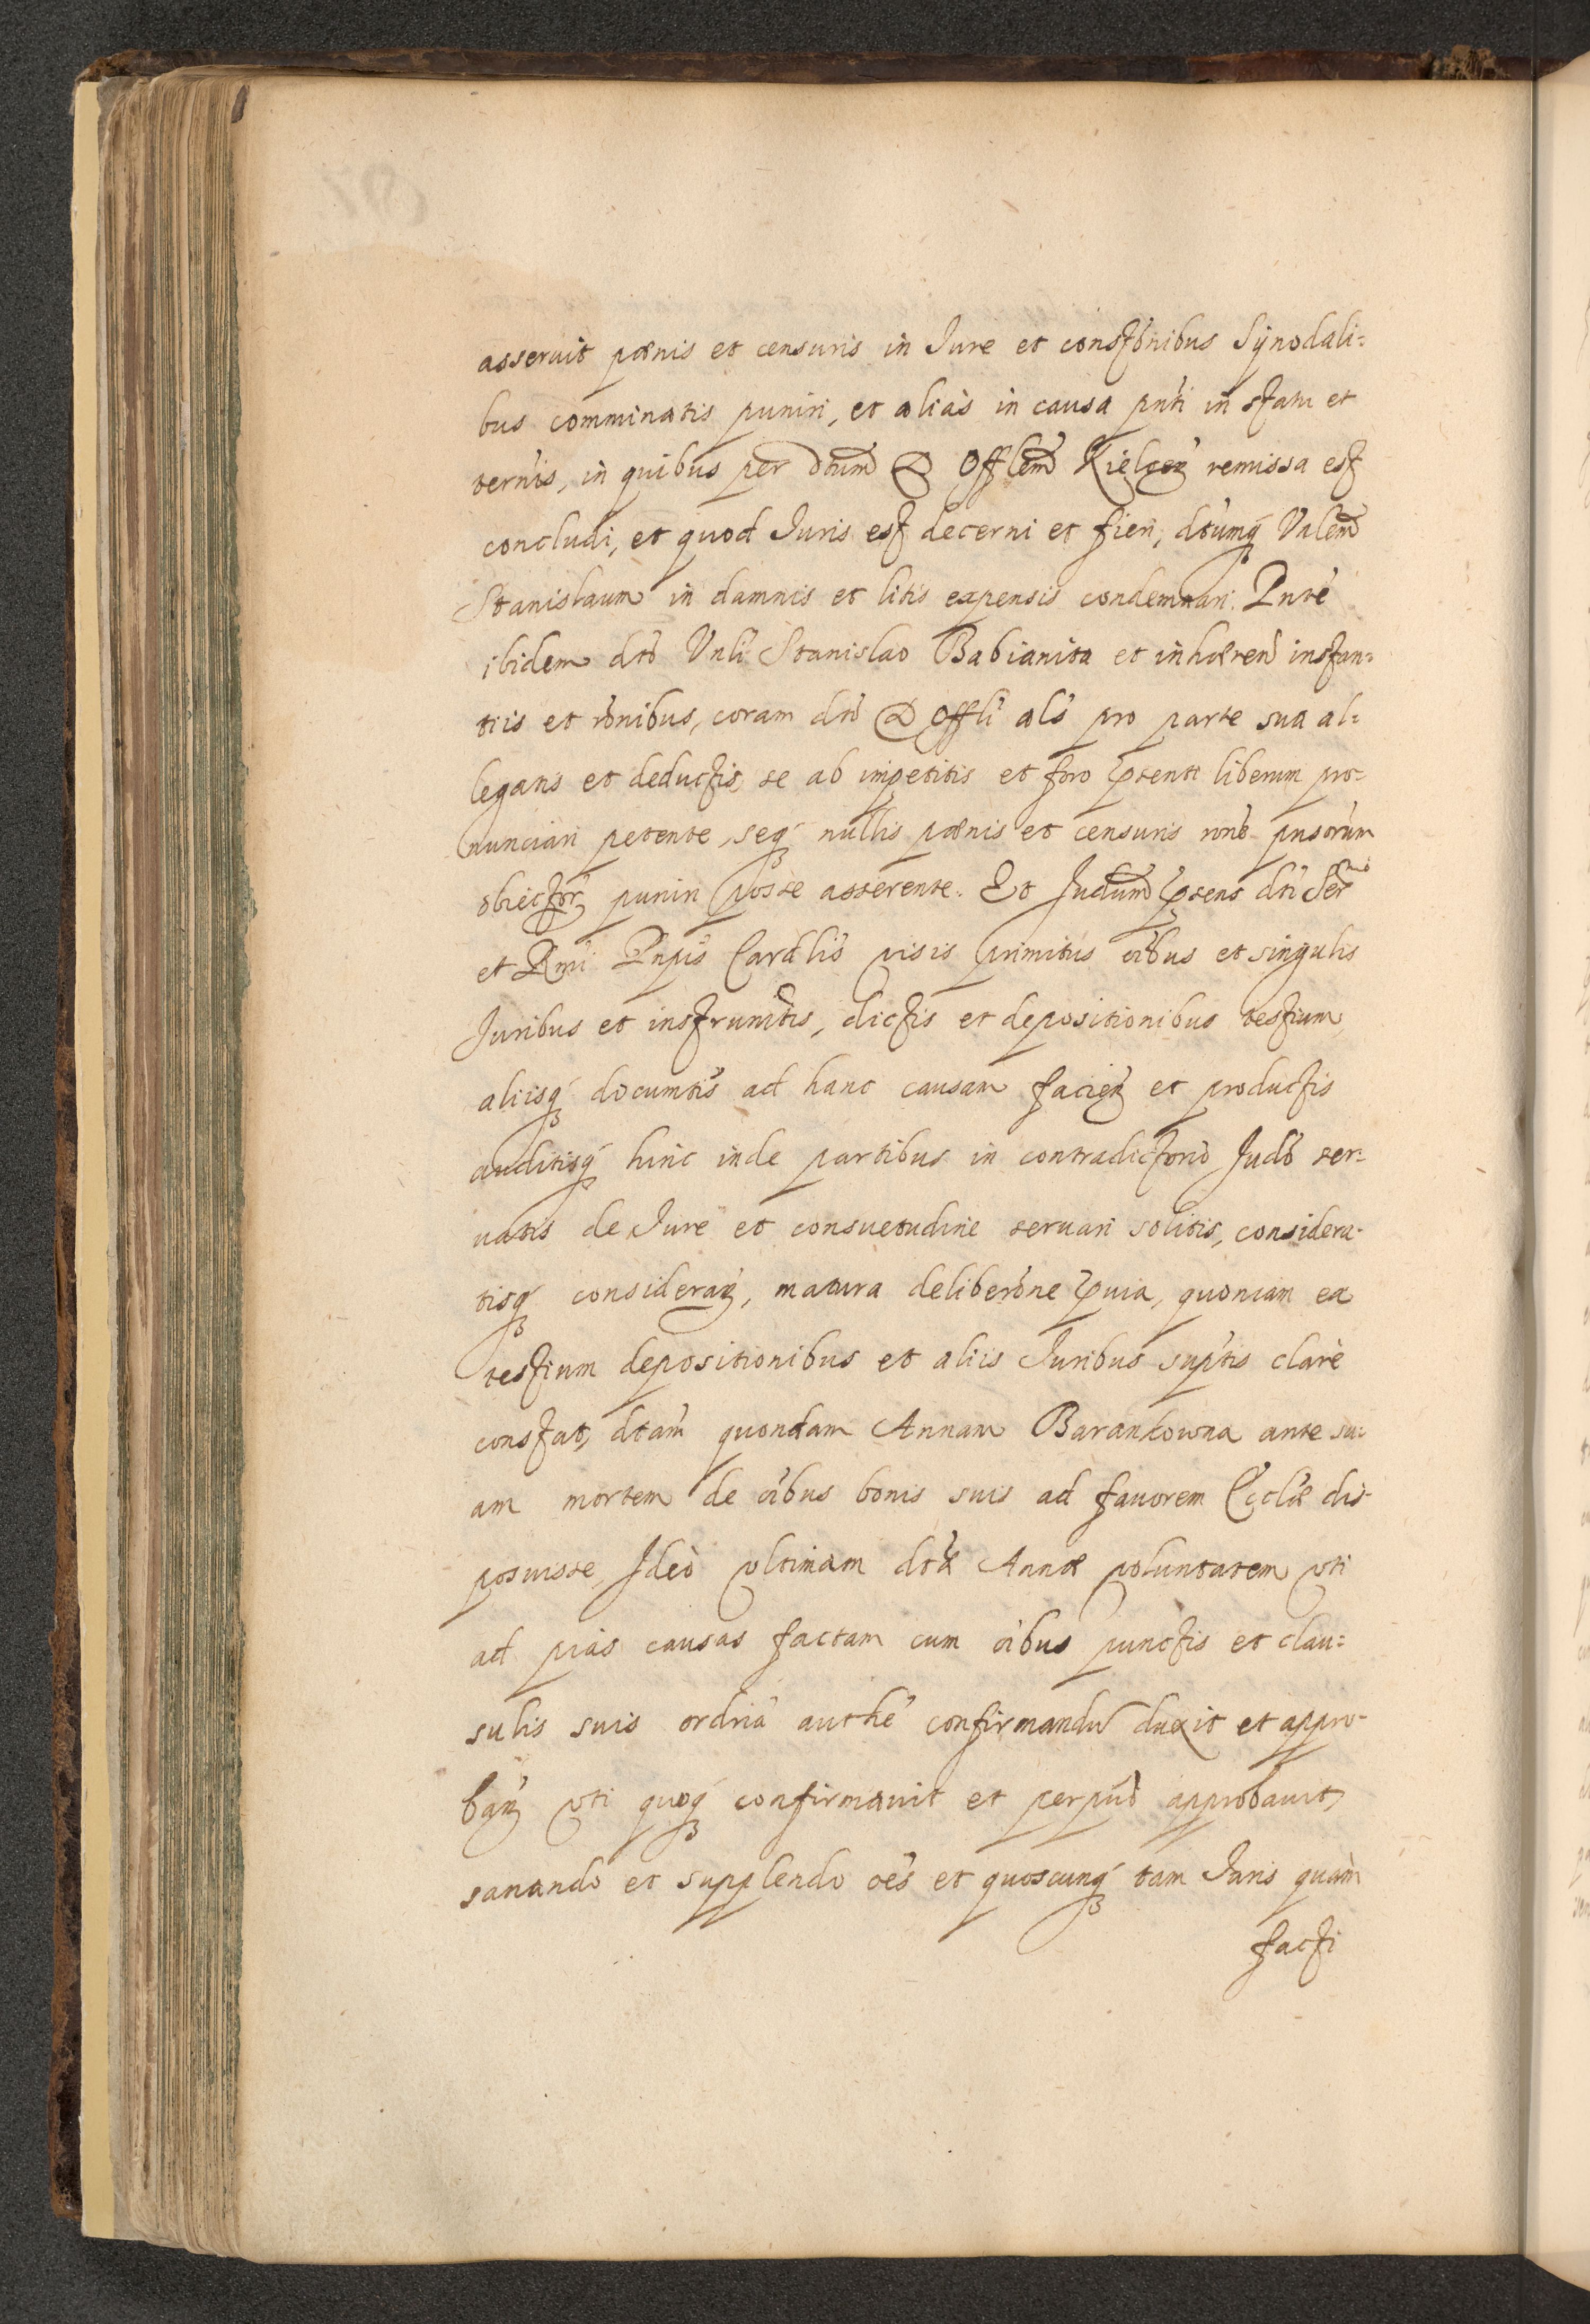 asseruit pænis et censuris in Jure et constõnibus Sÿnodali=
bus comminatis puniri, et aliàs in causa pñti in statu et
terñis, in quibus per dtum D Offlem Kielceñ remissa est
concludi, et quod Juris est decerni et fieri, dtumq́ Vnlem
Stanislaum in damnis et litis expensis condemnari. Pnte
ibidem dto Vnli Stanislao Babianita et inhæreñ instan=
tiis et rõnibus, coram dto D Offli als pro parte sua al=
legatis et deductis, se ab impetitis et foro pσsenti liberum pro=
nunciari petente, seq́ nullis pænis et censuris rone pnsorum
obiector puniri posse asserente. Et Judum pσsens dti Sermi
et Rmi Pnpis Cardlis visis primitus oibus et singulis
Juribus et instrumtis, dictis et depositionibus testium,
aliisq́ documtis ad hanc causam facień et productis
auditisq́ hinc inde partibus in contradictorio Judo ser=
uatis de Jure et consuetudine seruari solitis, considera=
tisq́ considerań, matura deliberõne pσuia, quoniam ex
testium depositionibus et aliis Juribus suptis clarè
constat, dtam quondam Annam Barankowna ante su=
am mortem de oibus bonis suis ad fauorem Ecclæ dis=
posuisse, Ideò vltimam dtæ Annæ voluntatem vti
ad pias causas factam cum oibus punctis et clau=
sulis suis ordria authe confirmandu duxit et appro=
bań vti quoq́ confirmauit et perpuo approbauit,
sanando et supplendo oes et quoscunq́ tam Juris quàm
facti